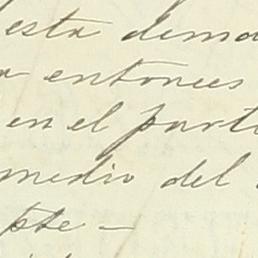 esta dema
a entonces
en el parti
medio del
pte —